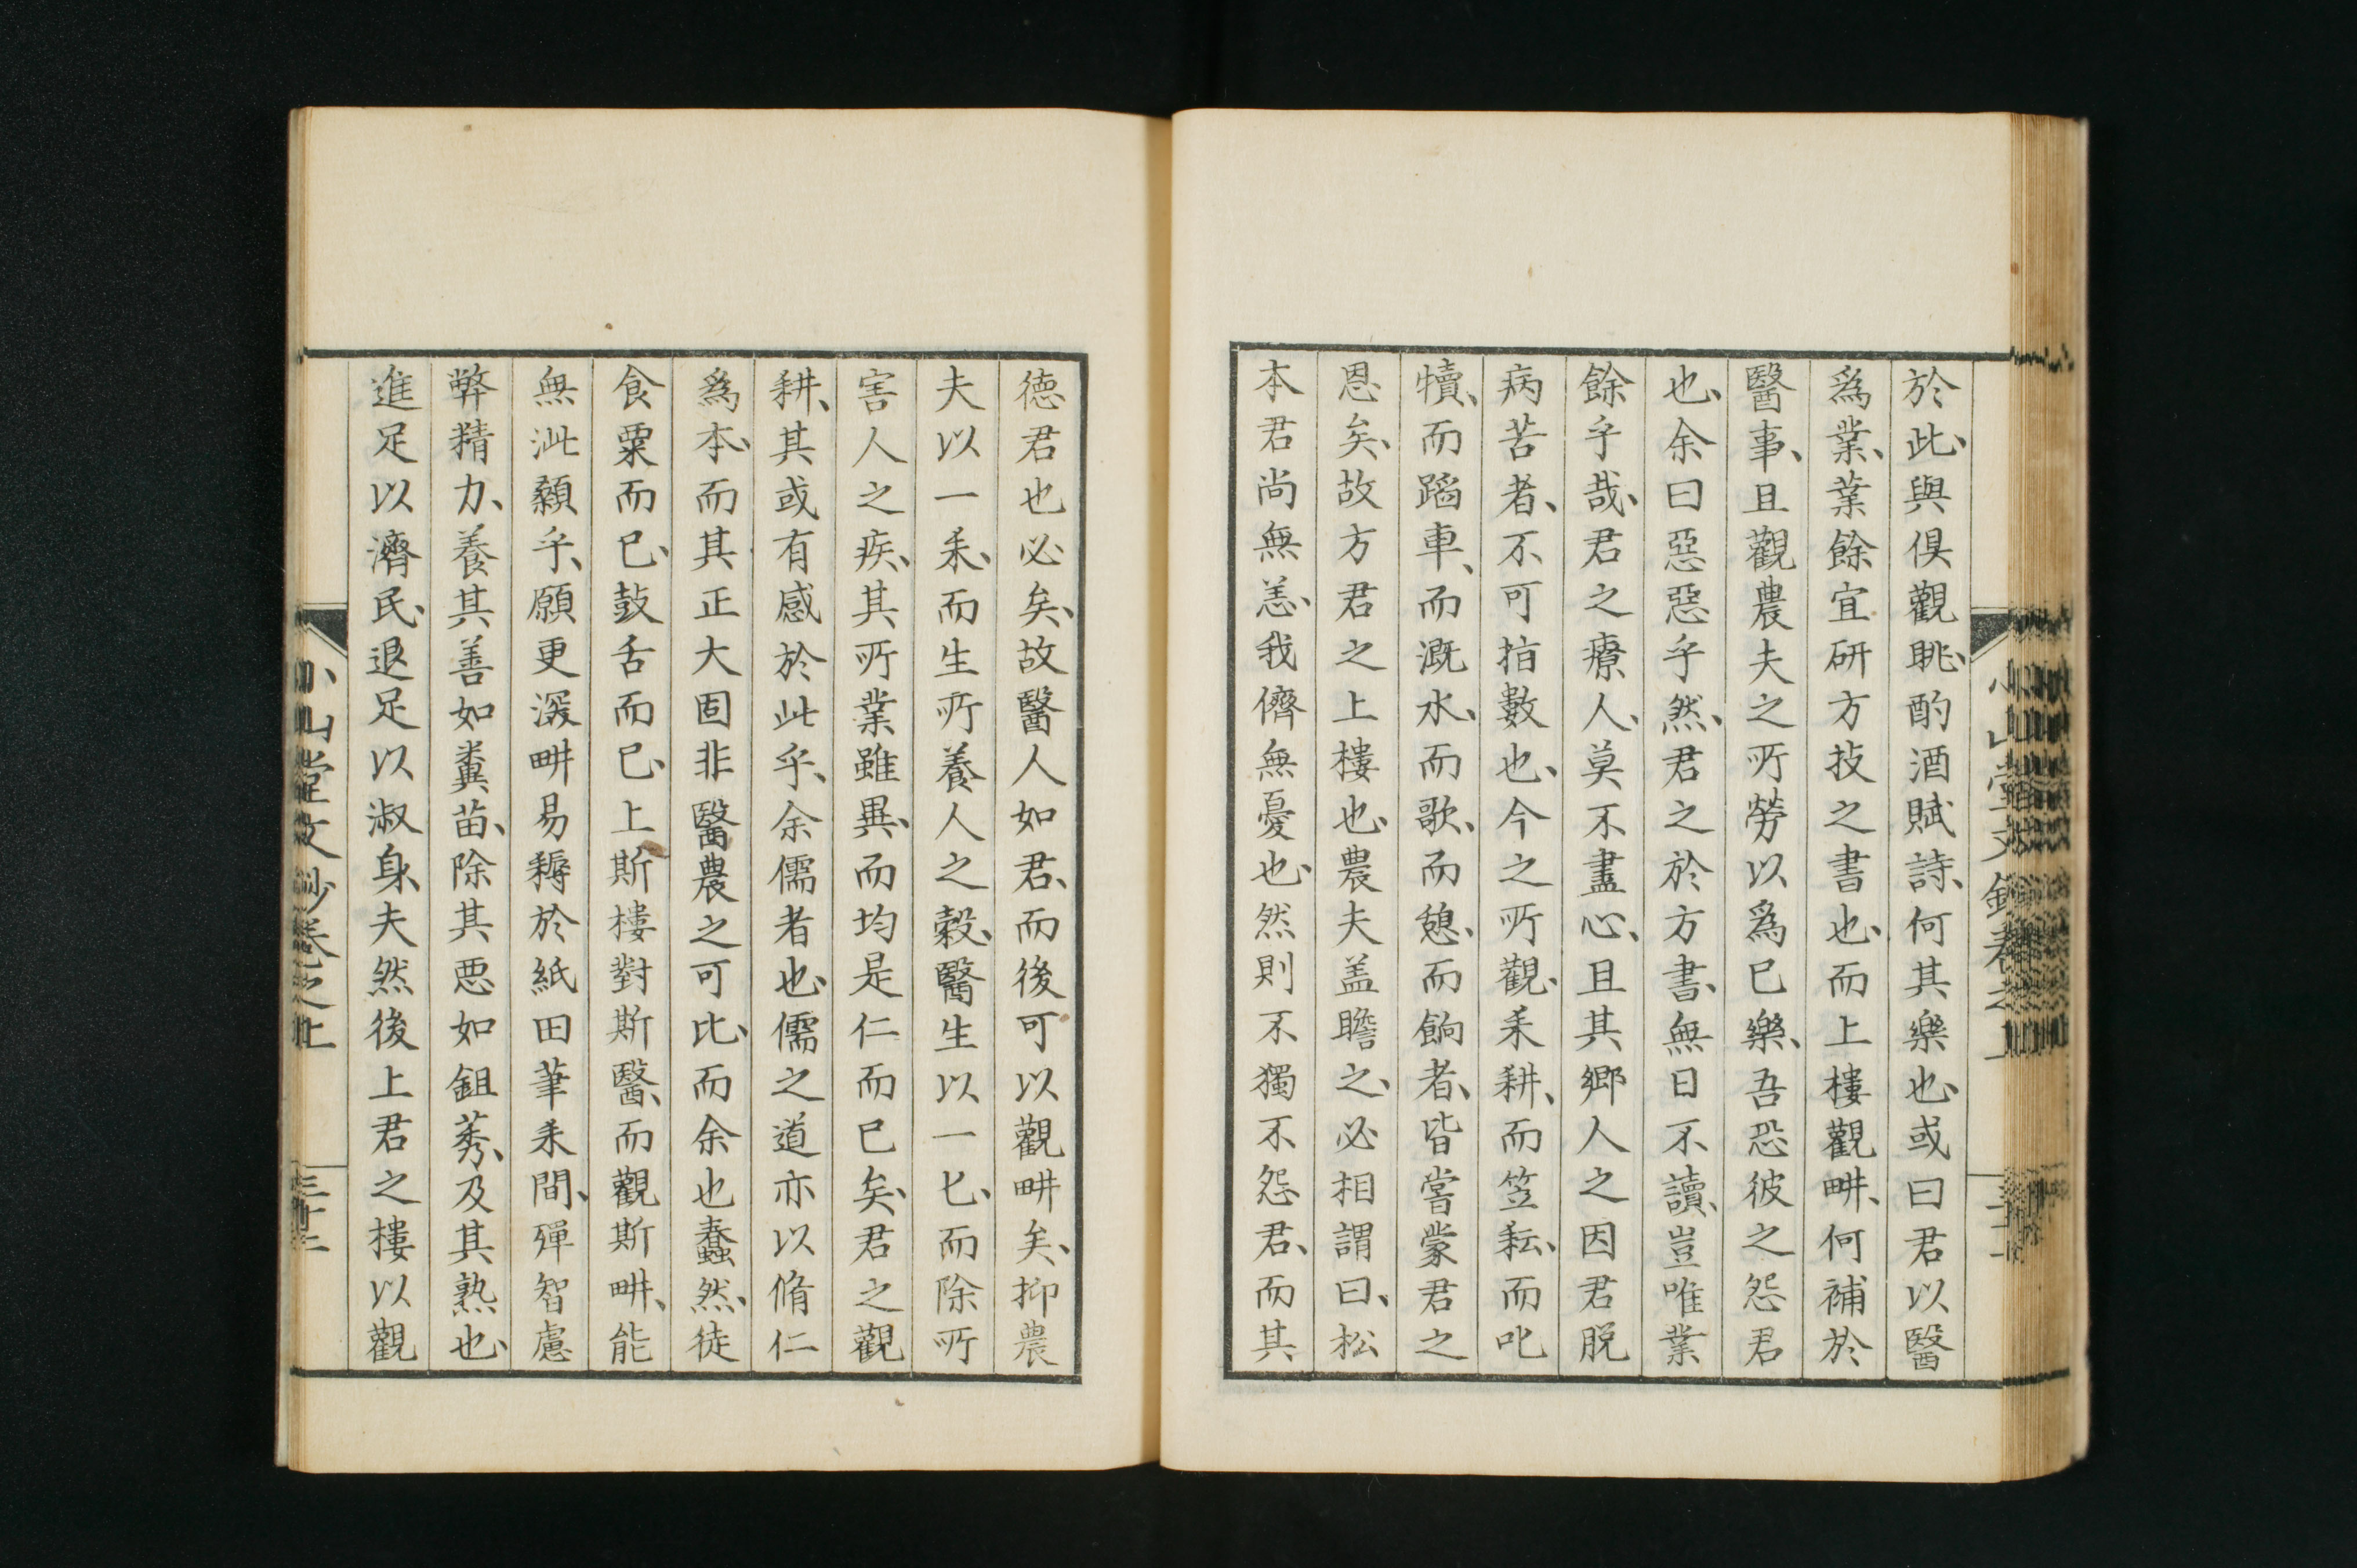 於此、與俱觀眺、酌酒賦詩、何其樂也、或曰君以醫
爲業、業餘宜研方技之書也、而上樓觀畊、何補於
醫事、且觀農夫之所勞以爲已樂、吾恐彼之怨君
也、余曰惡惡乎然、君之於方書、無日不讀、豈唯業
餘乎哉、君之療人、莫不盡心、且其鄉人之因君脱
病苦者、不可指數也、今之所觀、耒耕、而笠耘、而叱
犢、而蹈車、而漑水、而歌、而憩、而餉者、皆嘗蒙君之
恩矣、故方君之上樓也、農夫盖瞻之、必相謂曰、松
本君尚無恙、我儕無憂也、然則不獨不怨君、而其
德君也必矣、故醫人如君、而後可以觀畊矣、抑農
夫以一耒、而生所養人之穀、醫生以一匕、而除所
害人之疾、其所業雖異、而均是仁而已矣、君之觀
耕、其或有感於此乎、余儒者也、儒之道亦以脩仁
爲本、而其正大固非醫農之可比、而余也蠢然、徒
食粟而已、鼓舌而已、上斯樓對斯醫、而觀斯畊、能
無泚顙乎、願更深畊易耨於紙田筆耒間、殫智慮
弊精力、養其善如糞苗、除其惡如鉏莠、及其熟也、
進足以濟民、退足以淑身、夫然後上君之樓以觀
小山堂文鈔卷之上
三十二